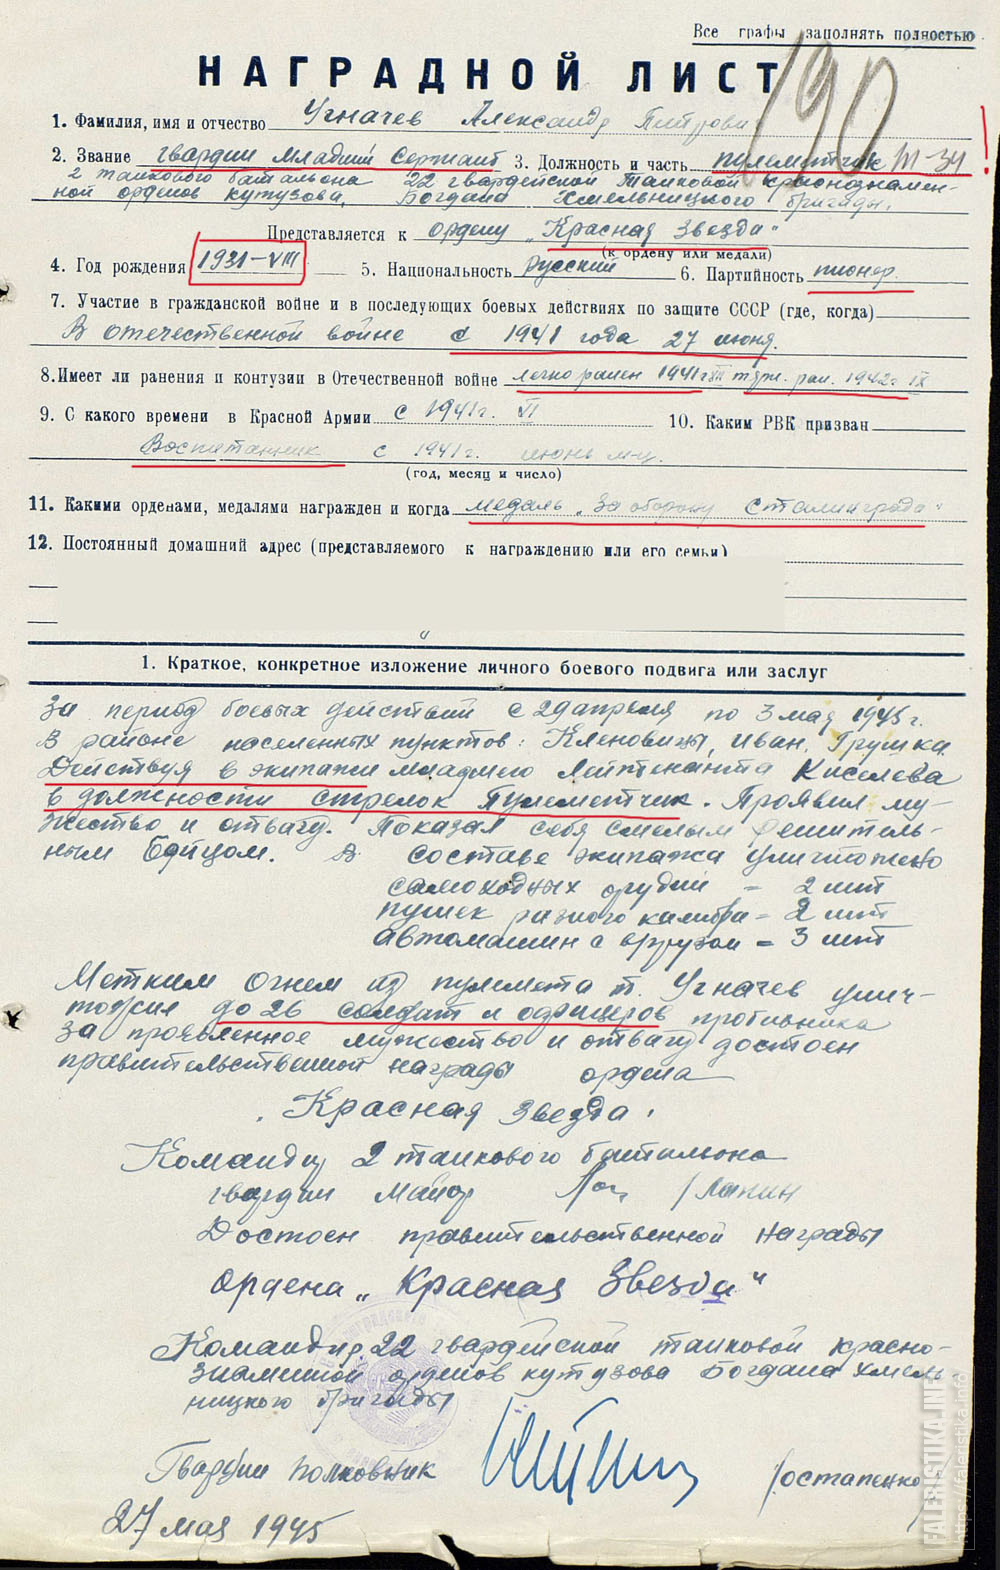 Все графы заполнять полностью
190
НАГРАДНОЙ ЛИСТ
1. Фамилия, имя и отчество Угначев Александр Петрович
2. Звание гвардии младший сержант 3. Должность и часть пулеметчик Т-34
2 танкового батальона 22 гвардейской танковой краснознамен-
ной орденов кутузова, Богдана Хмельницкого бригады.
Представляется к ордену „Красная Звезда"
(к ордену или медали)
4. Год рождения 1931-VIII 5. Национальность русский 6. Партийность пионер.
7. Участие в гражданской войне и в последующих боевых действиях по защите СССР (где, когда)
В отечественной войне с 1941 года 27 июня.
8. Имеет ли ранения и контузии в Отечественной войне легко ранен 1941г VII тяж. ран. 1942г IX
9. С какого времени в Красной Армии с 1941г. VI 10. Каким РВК призван
Воспитанник с 1941г. июнь м-ц.
(год, месяц и число)
11. Какими орденами, медалями награжден и когда медаль „За оборону Сталинграда"
12. Постоянный домашний адрес (представляемого к награждению или его семьи)
1. Краткое, конкретное изложение личного боевого подвига или заслуг
За период боевых действий с 29 апреля по 3 мая 1945г.
в районе населенных пунктов: Кленовицы, Иван, Грушка
Действуя в экипаже младшего лейтенанта Киселева
в должности стрелок пулеметчик. Проявил му-
жество и отвагу. Показал себя смелым решитель-
ным бойцом. В составе экипажа уничтожено
самоходных орудий = 2 шт
пушек разного калибра = 2 шт
автомашин с грузом = 3 шт
Метким огнем из пулемета т. Угначев унич-
тожил до 26 солдат и офицеров противника
За проявленное мужество и отвагу достоен
правительственной награды ордена
„Красная Звезда"
Командир 2 танкового батальона
гвардии майор Лапин
Достоен правительственной награды
ордена „Красная Звезда"
Командир 22 гвардейской танковой красно-
знаменной орденов кутузова Богдана Хмель-
ницкого бригады
Гвардии полковник /остапенко/
27 мая 1945
FALERISTIKA.INFO
https://faleristika.info